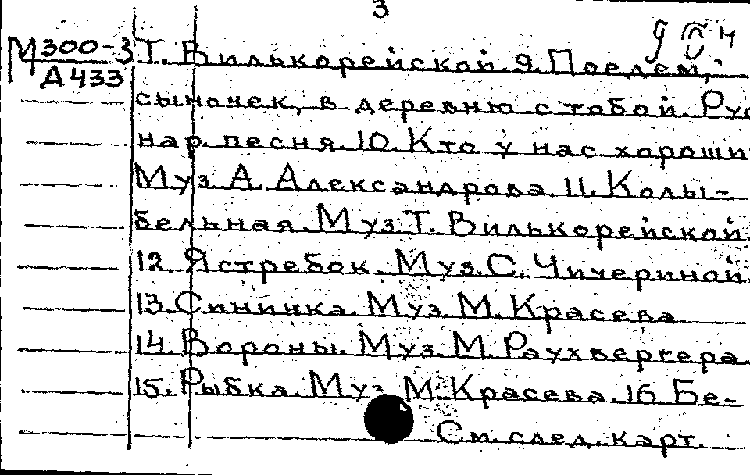 3
М300-3 Т. Вилькорейской 9. Поедем,
А433
сыночек, в деревню с тобой. Рус
нар. песня. 10. Кто у нас хороши
Муз. А. Александрова. 11. Колы-
бельная. Муз. Т. Вилькорейской.
12. Ястребок. Муз. С. Чичериной
13. Синичка. Муз. М. Красева.
14. Вороны. Муз. М. Раухвергера.
15. Рыбка. Муз. М. Красева. 16. Бе-
См. след. карт.